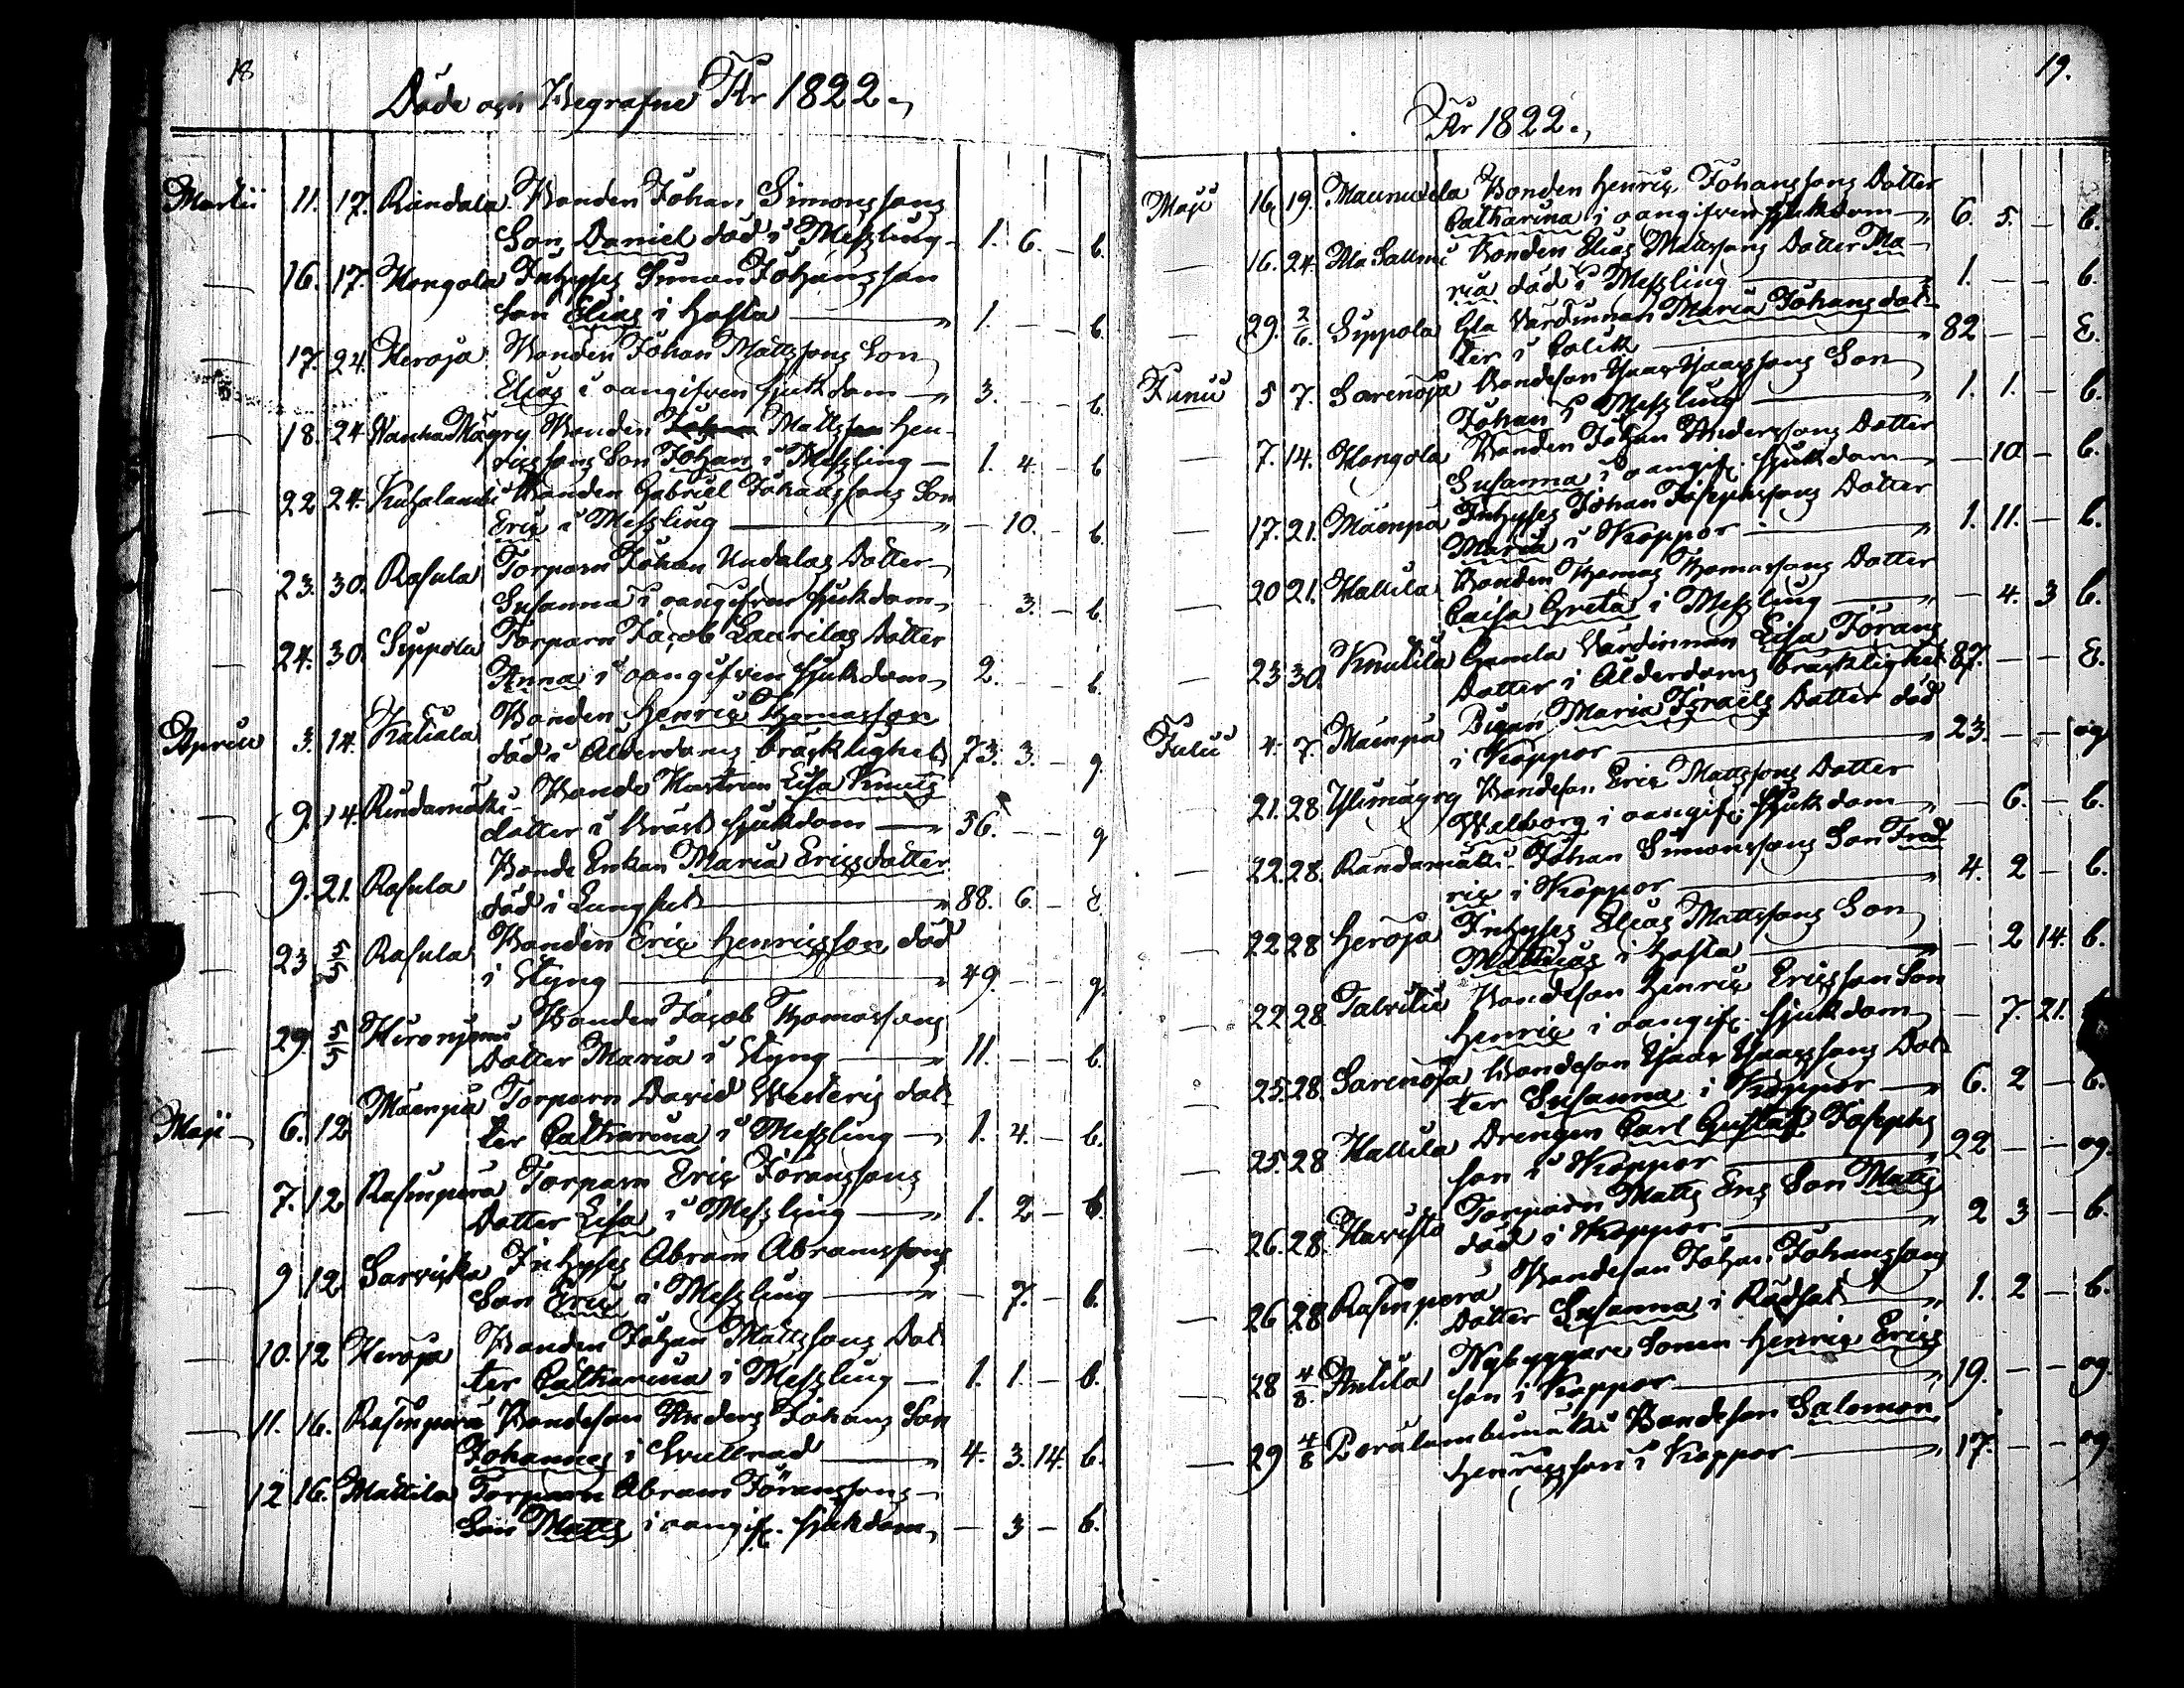 18
Döde och Begrafne År 1822.
Martii 11. 17. Rändälä Bonden Johan Simonssons
Son Daniel död i Messling 1. 6. — b.
— 16. 17. Hongola Inhyses Simon Johansson
Son Elias i Hosta — 1. — — b.
— 17. 24. Heroja Bonden Johan Mattssons Son
Elias i oangifven sjukdom 3. — — b.
— 18. 24 Wanha Mägry Bonden Mattsson Hen-
ricssons Son Johan i Messling — 1. 4. — b
— 22 24. Bonden Gabriel Johanssons Son
Eric i Messling — — 10. — b.
— 23. 30. Rasula Torparn Johan Uudalas Dotter
Susanna i oangifven sjukdom — 3. — b.
— 24. 30. Sippola Torparn Jacob Laurilas Dotter
Anna i oangifven sjukdom 2. — — b.
Aprill 3. 14. Katiala Bonden Henric Thomasson
död i Ålderdoms bräcklighet 73. 3. — g.
9. 14. Rindamäki Bonde Hustrun Lisa Knuts
dotter i Bröst sjukdom — 56. — — g
— 9. 21. Rasula Bonde Enkan Maria Ericsdotter
död i Lungsot — 88. 6. — E.
— 23 5/5 Rasula Bonden Eric Henricsson död
i Styng — 49. — — g.
— 29. 5/5 Hironjemi Bonden Jacob Thomassons
Dotter Maria i Styng — 11. — — b.
Maji 6. 12 Mäenpä Torparn David Westeris dot-
ter Catharina i Messling — 1. 4. — b.
— 7. 12 Rasinperä Torparn Eric Jöranssons
Dotter Lisa i Messling — 1. 2 — b.
— 9 12 Sarvicka Inhyses Abram Abramssons
Son Eric i Messling — — 7. — b.
— 10. 12 Heroja Bonden Johan Mattssons Dot-
ter Catharina i Messling — 1. 1. — b.
— 11. 16. Rasinperä Bondeson Anders Johans Son
Johannes i Svullnad — 4. 3. 14. b.
— 12 16. Mattila Torparn Abram Jöranssons
Son Matts i oangif. sjukdom — 3 — b.
19.
År 1822.
Maji 16. 19. Maunuxela Bonden Henric Johanssons Dotter
Catharina i oangifven sjukdom — 6. 5. — b.
— 16. 24. Ala Sallmi Bonden Elias Mattssons Dotter Ma-
ria död i Messling — 1. — — b.
— 29. 2/6. Sippola Gla Värdinnan Maria Johans dot-
ter i Colik — 82 — — E.
Junii 5 7. Sarenoja Bondeson Isaac Isaacssons Son
Johan i Messling — 1. 1. — b.
— 7. 14. Hongola Bonden Johan Anderssons Dotter
Susanna i oangif. sjukdom — 10 — b.
— 17. 21. Mäenpä Inhyses Johan Josephssons Dotter
Maria i Koppor — 1. 11. — b.
— 20 21. Hallila Bonden Thomas Thomassons Dotter
Caisa Greta i Messling — — 4. 3 b.
— 23 30. Knutila Gamla Värdinnan Lisa Jörans
Dotter i Ålderdoms bräcklighet 87. — — E.
Julii 4. 7. Mäenpä Pigan Maria Israels Dotter död
i Koppor — 23. — — og
— 21. 28 Ylimägry Bondeson Eric Mattssons Dotter
Walborg i oangif. sjukdom — — 6. — b.
— 22. 28. Rändämäki Johan Simonssons Son Fred
ric i Koppor — 4. 2 — b.
— 22 28 Heroja Inhyses Elias Mattssons Son
Matthias i Hosta — — 2 14. b.
— 22 28 Talvitie Bondeson Henric Ericsson Son
Henric i oangif. sjukdom — 7. 21.
— 25. 28. Sarenoja Bondeson Isaac Isaacssons Dot-
ter Susanna i Koppor — 6. 2 — b.
— 25. 28 Hallila Drengen Carl Gustaf Josephs
son i Koppor — 22 — — og.
— 26. 28. Havisto Torparn Matts Ens Son Matts
död i Koppor — 2 3 — b.
— 26 28 Rasinperä Bondeson Johan Johanssons
Dotter Susanna i Rödsot — 1. 2 — b.
— 28 4/8. Antila Nybyggare Sonen Henric Erics
son i Koppor — 19. — — og.
— 29 4/8 Bondeson Salomon
Henricsson i Koppor — 17. — — og